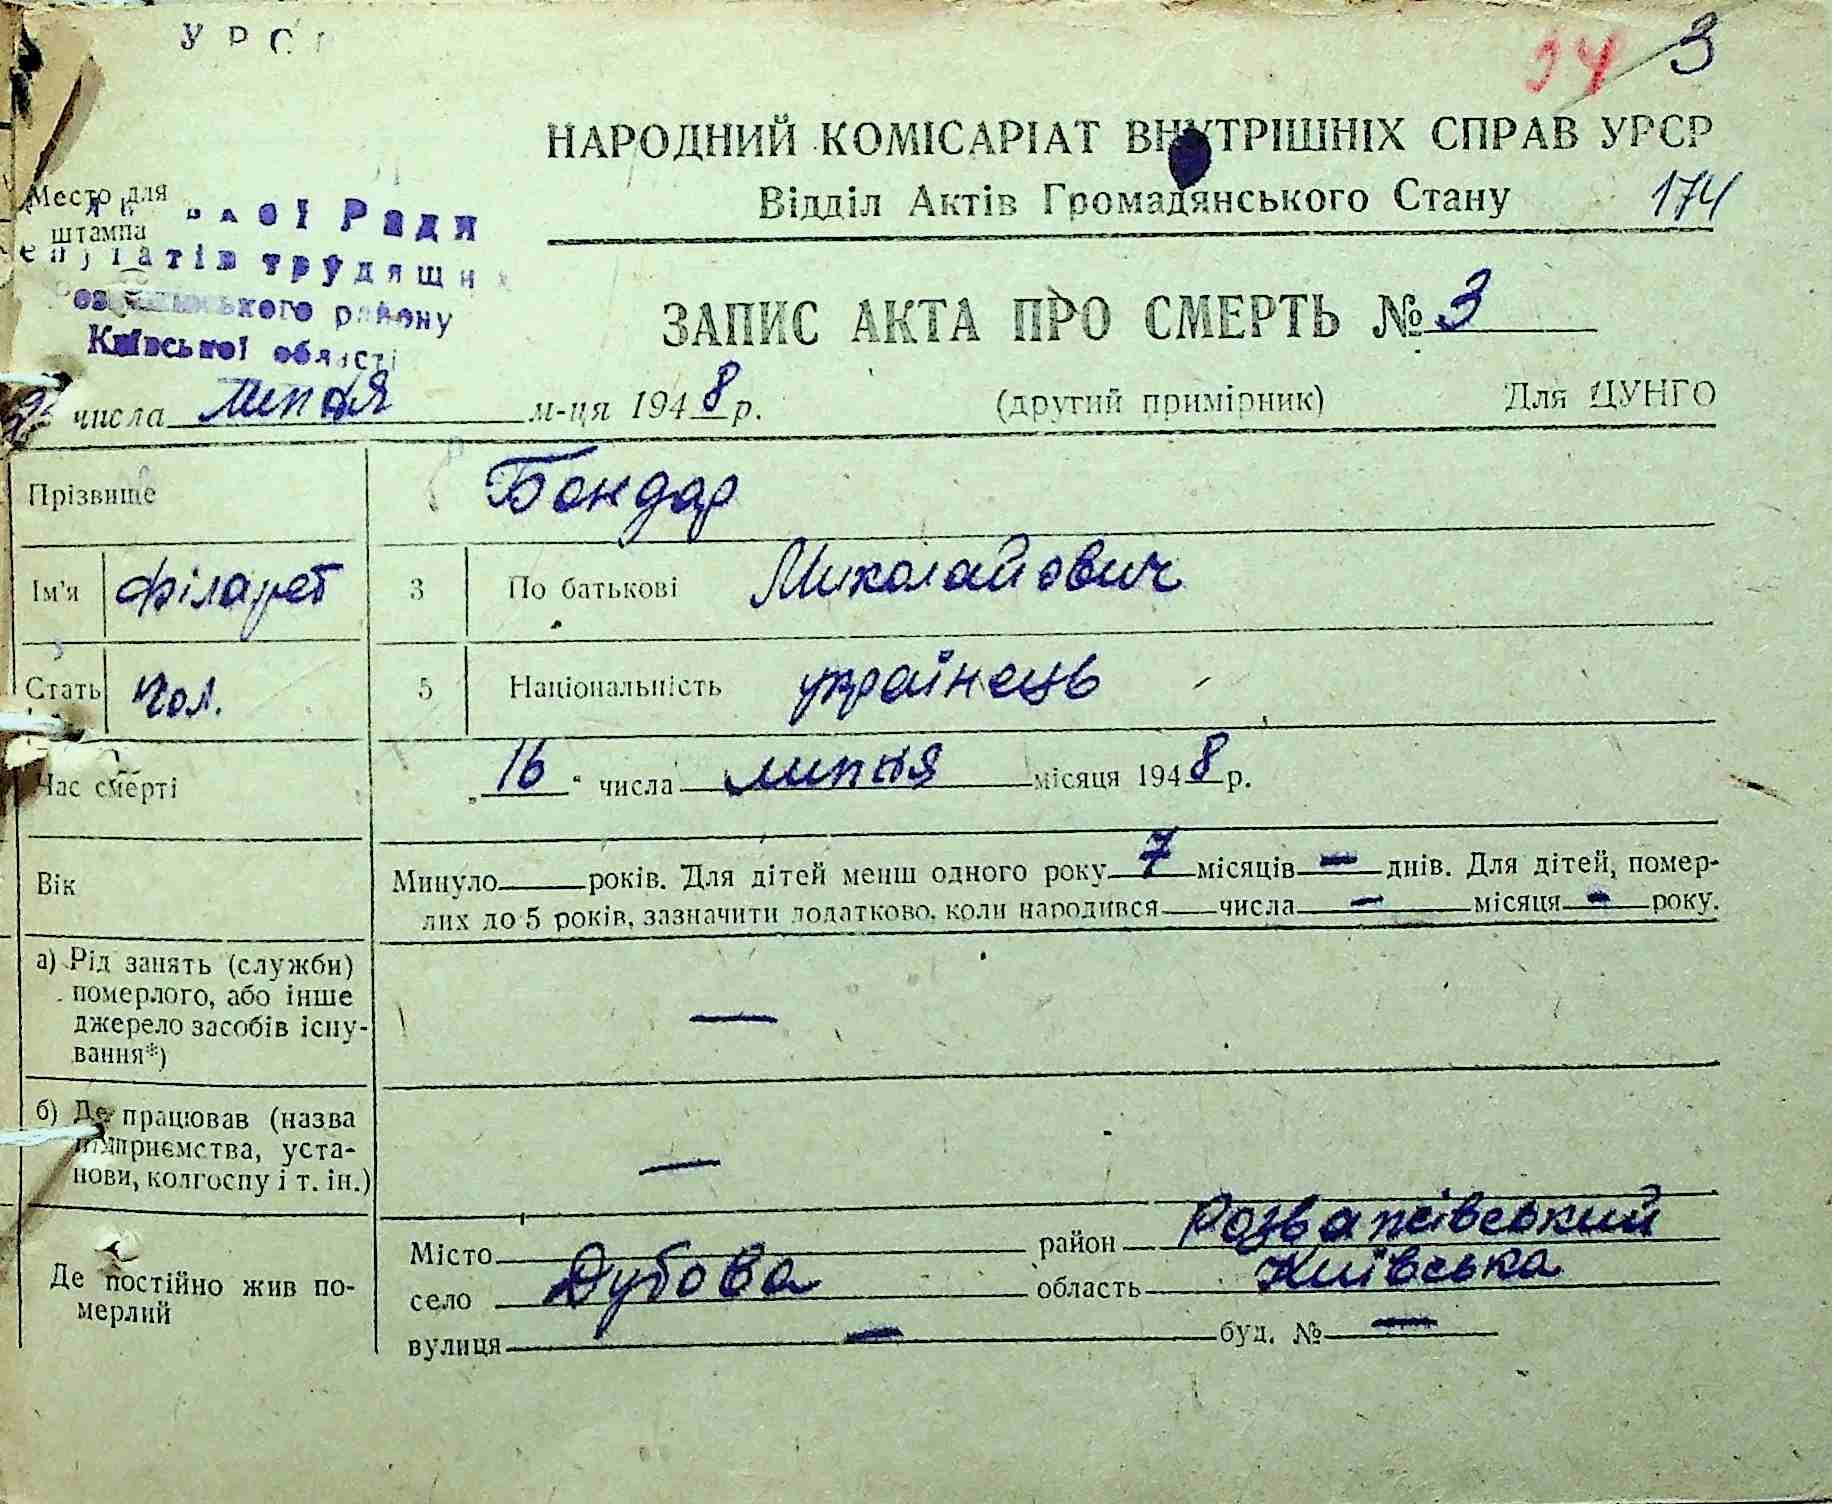 УРС
24 3
НАРОДНИЙ КОМІСАРІАТ ВНУТРІШНІХ СПРАВ УРСР
Відділ Актів Громадянського Стану 174
Место для
штампа
Ради
трудящих
району
Київської області
ЗАПИС АКТА ПРО СМЕРТЬ № 3
числа липня м-ця 1948 р. (другий примірник) Для ЦУНГО
Прізвище Бондар
Ім'я Філарет 3 По батькові Миколайович
Стать Чол. 5 Національність українець
Час смерті „16" числа липня місяця 1948 р.
Вік Минуло років. Для дітей менш одного року 7 місяців — днів. Для дітей, помер-
лих до 5 років, зазначити додатково, коли народився числа — місяця — року.
а) Рід занять (служби)
померлого, або інше
джерело засобів існу-
вання*) —
б) Де працював (назва
підприємства, уста-
нови, колгоспу і т. ін.) —
Де постійно жив по-
мерлий
Місто район Розважівський
село Дубова область Київська
вулиця — буд. № —